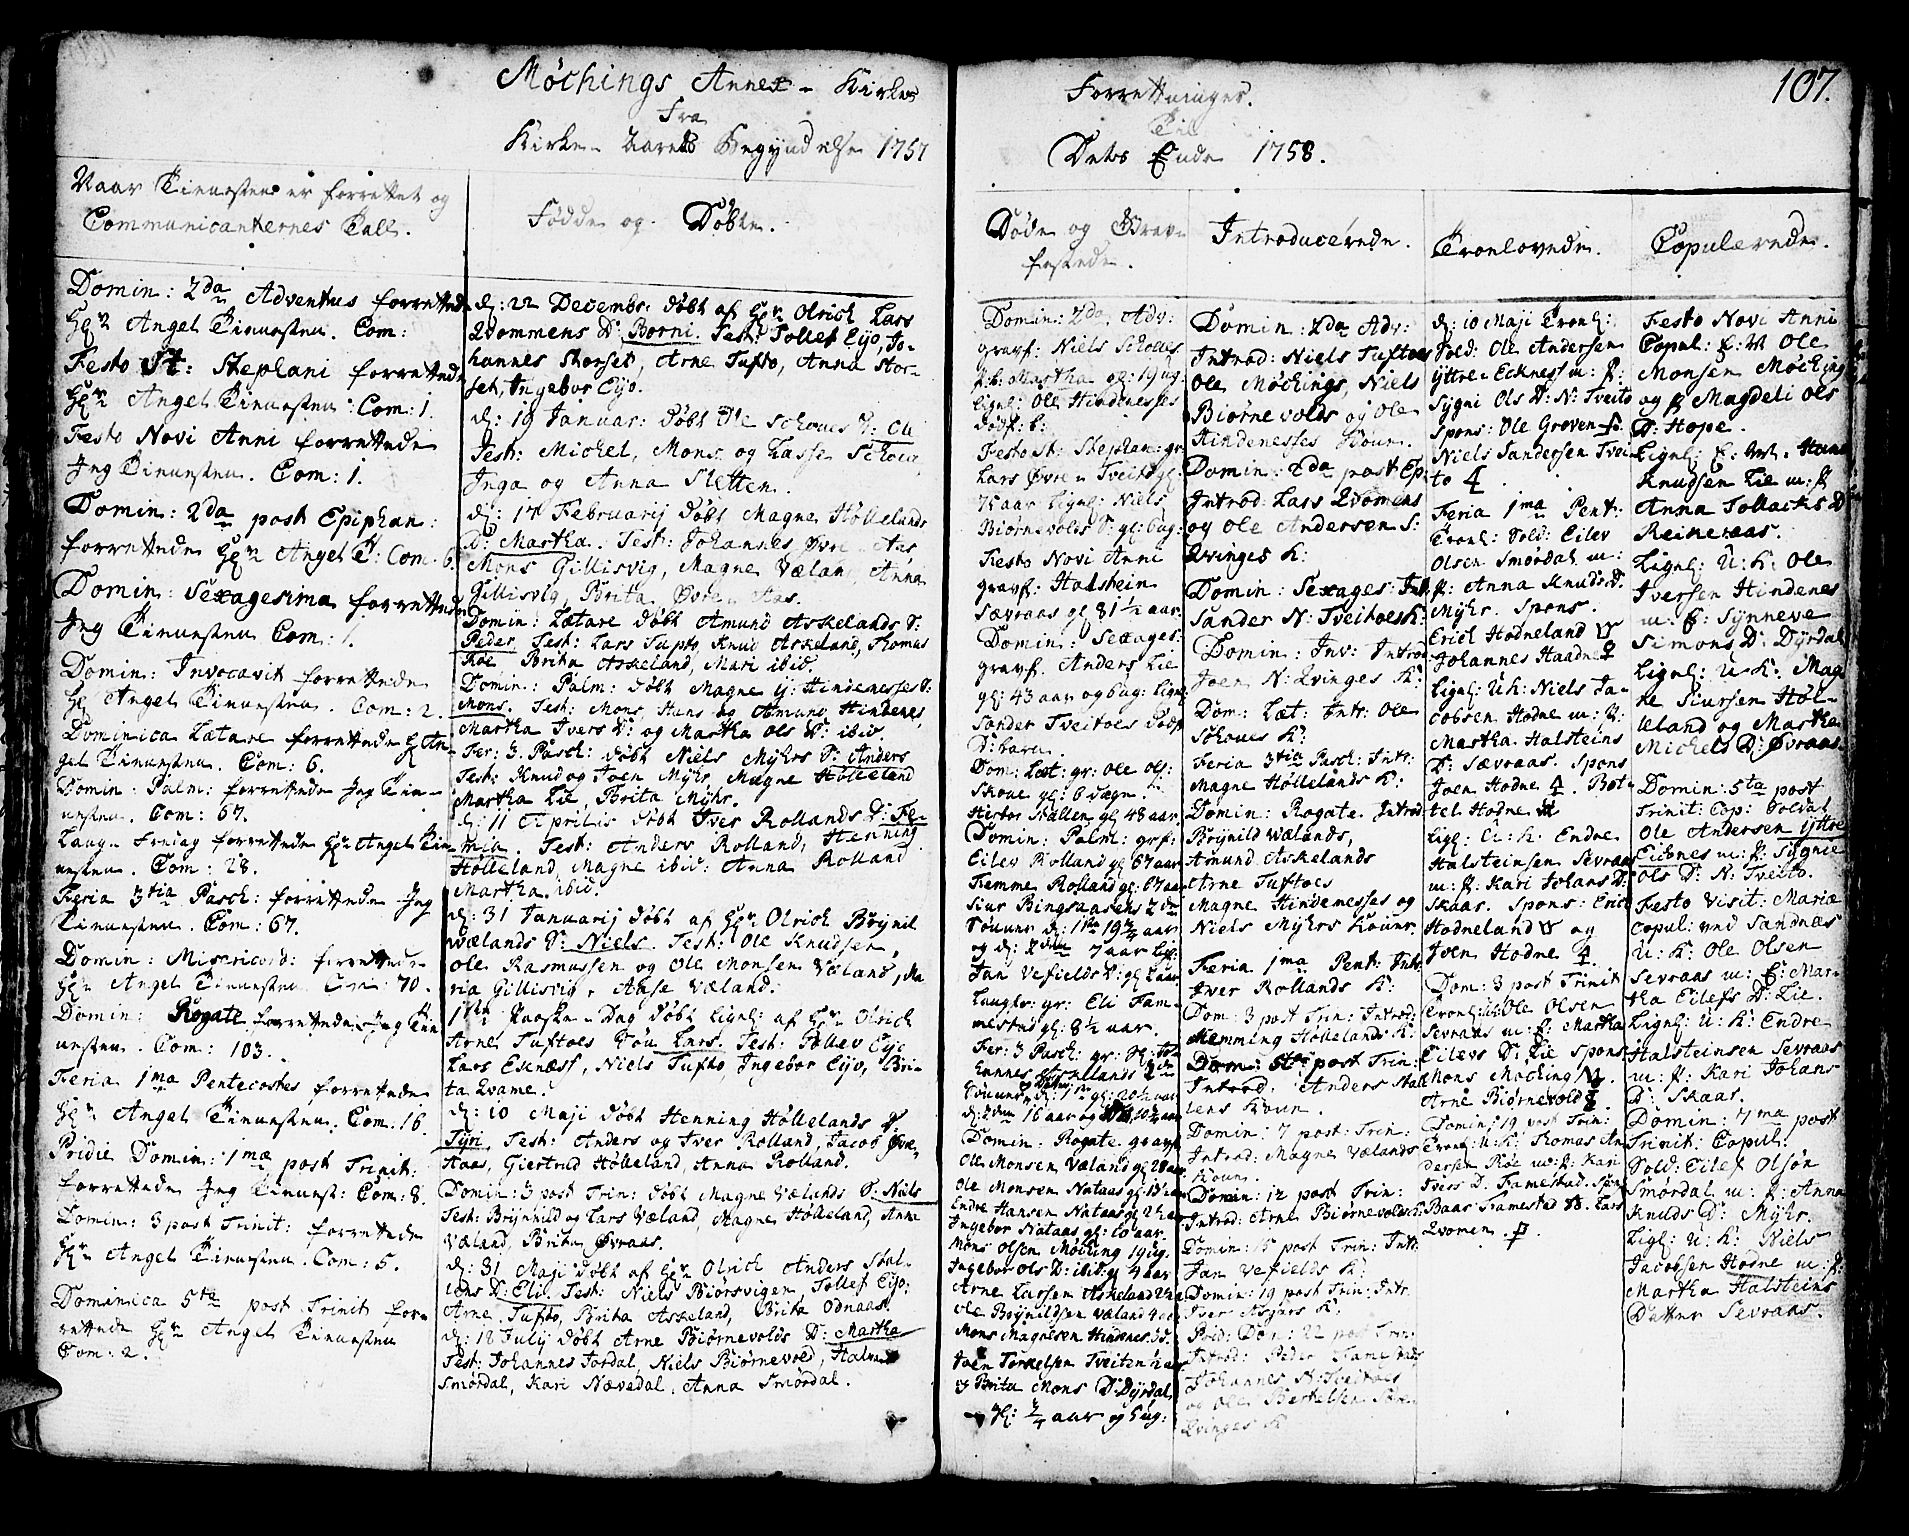 Møchings Annex - Kirkes
Fra
Kirke - Aarets Begyndelse 1757
Forretninger.
Til
Dets Ende 1758.
107.
Naar Tienesten er forrettet og
Communicanternes Tall.
Domin: 2da Adventus forrettede
Hr Angel Tienesten. Com:
Festo St: Stephani forrettede
Hr Angel Tienesten. Com: 1.
Festo Novi Anni forrettede
Jeg Tienesten. Com: 1.
Domin: 2da post Epiphan:
forrettede Hr Angel T: Com: 6.
Domin: Sexagesima forrettede
Jeg Tienesten Com: 1.
Domin: Invocavit forrettede
Hr Angel Tienesten. Com: 2.
Dominica Lætare forrettede Hr An-
gel Tienesten. Com: 6.
Domin: Palm: forrettede Jeg Tien-
nesten. Com: 67.
Lang - Fredag forrettede Hr Angel Tie-
nesten. Com: 28.
Feria 3tia Pasch: forrettede Jeg
Tienesten. Com: 67.
Domin: Misericord: forrettede
Hr Angel Tienesten Com: 70.
Domin: Rogate forrettede Jeg Tien
nesten. Com: 103.
Feria 1ma Pentecostes forrettede
Hr Angel Tienesten. Com: 16.
Pridie Domin: 1mæ post Trinit:
forrettede Jeg Tienest: Com: 8.
Domin: 3 post Trinit: forrettede
Hr Angel Tienesten. Com: 5.
Dominica 5ta post Trinit for-
rettede Hr Angel Tienesten
Com: 2.
Fødde og Døbte.
d: 22 Decembr: døbt af Hr Olrich Lars
Qvommens D: Borni. Test: Tollef Eyo, Jo-
hannes Storset, Arne Tufto, Anna Stor-
set, Ingebor Eyo.
d: 19 Januar: døbt Ole Schoues S: Ole
Test: Michel, Mons og Lasse Schoue,
Inga og Anna Sletten.
d: 17 Februarij døbt Magne Høllelands
D: Martha. Test: Johannes Øvre - Aas
Mons Gillisvig, Magne Væland, Anna
Gillisvig, Brita Øvre - Aas.
Domin: Lætare døbt Amund Askelands S:
Peder Test: Lars Tufto, Knud Askeland, Thomas
Røe Brita Askeland, Mari ibid.
Domin: Palm: døbt Magne Y: Hindenesses S:
Mons. Test: Mons, Hans og Amund Hindenes
Martha Ivers D: og Martha Ols D: ibid.
Fer: 3. Pasch: døbt Niels Myhrs S: Anders
Test: Knud og Joen Myhr, Magne Hølleland
Martha Lie, Brita Myhr.
d: 11 Aprilis døbt Iver Rollands D: Fe-
mia. Test: Anders Rolland, Henning
Hølleland, Magne ibid: Anna Rolland
Martha ibid.
d: 31 Januarij døbt af Hr Olrich Brynil
Wælands S: Niels. Test: Ole Knudsen,
Ole Rasmussen og Ole Monsen Væland, Ma
ria Gillisvig, Aase Væland.
1ste Paaske - Dag døbt ligel: af Hr Olrich
Arne Tuftoes Søn Lars. Test: Tollev Eye
Lars Eknæss, Niels Tufto, Ingebor Eyo, Bri-
ta Qvame.
d: 10 Maji døbt Henning Høllelands D:
Tyri. Test: Anders og Iver Rolland, Jacob Øvre
Aas, Giertrud Hølleland, Anna Rolland.
Domin: 3 post Trin: døbt Magne Vælands S: Niels
Test: Brynhild og Lars Væland, Magne Hølleland, Anna
Væland, Brita Øvraas.
d: 31 Maji døbt af Hr Olrich Anders Stal-
lens D: Eli. Test: Niels Biørsvigen, Tollef Eyo:
Arne Tufto, Brita Askeland, Brita Odnaas.
d: 12 July døbt Arne Biørnevolds D: Martha
Test: Johannes Fordal, Niels Biørnevold, Halvor
Smørdal, Kari Nævedal, Anna Smørdal.
Døde og Grav-
festede.
Domin: 2da Adv:
gravf: Niels Schoues
Martha gl: 19 ug.
ligel: Ole Hindenesses
dødf: b:
Festo St: Stephan: gr:
Lars Øvre - Tveits gl:
7 Aar ligel: Niels
Biørnevolds S: gl: 6 ug:
Festo Novi Anni
gravf: Halstein
Sævraas gl 81 1/2 aar.
Domin: Sexages:
gravf. Anders Lie
gl: 43 aar og 6 ug: ligel
Sander Tveitoes dødf
D: barn.
Dom: Læt: gr: Ole Ols:
Skoue gl: 6 dage.
Hestor Stallen gl 48 aar.
Domin: Palm: grf:
Eilev Rolland gl 67 aar
Femme Rolland gl: 67 aar
Siur Bingsaasens 2de
Sønner d: 1ste 19 3/4 aar
og d: 2den 7 aar lig:
Jan Vefields S: gl 2 aar
Langfr: gr: Eli Fam-
mestad gl: 8 1/2 aar.
Fer: 3 Pasch: gr: Jo-
hannes Askelands 2de
d: 2den 16 aar og
Domin: Rogate gravf
Ole Monsen Væland gl 28 aar
Ole Monsen Nataas gl: 15 aar
Endre Hansen Nataas gl 2 aar
Ingebor Nataas gl: 60 aar.
Mons Olsen Møching 19 ug.
Ingebor Ols D: ibid: gl 4 aar
Arne Larsen Askeland
Ole Brynildsen Væland
Mons Magnesen Hindenes
Joen Torkelsen Tveiten
& Brita Mons D: Dyrdal
gl: 3/4 aar og 5 ug:
Introducerede.
Domin: 2da Adv:
Introd: Niels Tuftoes
Ole Møchings, Niels
Biørnevolds og Ole
Hindenesses Koner.
Domin: 2da post Ep:
Introd: Lars Qvomens
og Ole Andersen S:
Qvinges K:
Domin: Sexages: Int.
Sander N: Tveitoes K:
Domin: Inv: Introd
Joen N: Qvinges K:
Dom: Læt: Intr: Ole
Schoues K:
Feria 3tia Pasch: Intr:
Magne Høllelands K:
Domin: Rogate Introd
Brynild Wælands,
Amund Askelands
Arne Tuftoes
Magne Hindenesses og
Niels Myhrs Koner.
Feria 1ma Pent: Intr
Iver Rollands K:
Dom: 3 post Trin: Introd:
Hemming Høllelands K:
Dom: 5ta post Trin:
Introd: Anders Stal
lens Kone.
Domin: 7 post Trin:
Introd: Magne Vælands
Kone.
Domin: 12 post Trin:
Introd: Arne Biørnevolds K:
Domin: 15 post Trin: Intr:
Jan Vefields K:
Domin: 19 post Trin: Intr.
Iver Asgers K:
Prid: Dom: 22 post Trin:
Introd: Peder Famestads
Johannes N: Tveitoes
og Ole Bertelsen
Qvinges K
Troelovede.
d: 10 Maji Troel:
Sold: Ole Andersen
Yttre - Ecknes m: P:
Sygni Ols D: N: Tveito
Spons: Ole Groven
Niels Sandersen Tvei
to
Feria 1ma Pent:
Troel: Sold: Eilev
Olsen Smørdal m:
P: Anna Knuds D:
Myhr. Spons.
Erich Hodneland &
Johannes Haadne
ligel: U: K: Niels Ja-
cobsen Hodne m: P:
Martha Halsteins
D: Sævraas. Spons
Joen Hodne. Bot-
tel Hodne
lig: U: K: Endre
Halsteinsen Sevraas
m: P: Kari Johans D:
Skaar. Spons: Erich
Hodneland og
Joen Hodne
Dom: 3 post Trinit
Troel: U: K: Ole Olsen
Sevraas m: E: Martha
Eilevs D: Lie Spons
Mons Moching
Arne Biørnevold
Domin: 19 post Trin:
Troel: U: K: Thomas An
dersen Røe m: P: Kari
Ivers D: Famestad. Spon
Baar Framestad Lars
Qvomen.
Copulerede.
Festo Novi Anni
Copul: E: M Ole
Monsen Møching
og P Magdeli Ols
D: Hope.
Ligel: E: M. Hans
Knudsen Lie m: P
Anna Tollachs D
Reikeraas.
Ligel: U: K: Ole
Iversen Hindenes
m: E: Synneve
Simons D: Dyrdal
Ligel: U: K: Mag
ne Siursen Høl-
leland og Martha
Michels D: Øvraas
Domin: 5ta post
Trinit: Cop: Soldat
Ole Andersen Yttre
Eicknes m: P: Sygnie
Ols D: N: Tveito.
Festo Visit: Mariæ
Copul: ved Sandnæs
U: K: Ole Olsen
Sevraas m: E: Mar-
tha Eilefs D: Lie.
Ligel: U: K: Endre
Halsteinsen Sevraas
m: P: Kari Johans
D: Skaar.
Domin: 7ma post
Trinit: Copul:
Sold: Eilef Olsøn
Smørdal m: P: Anna
Knuds D: Myhr.
ligel: U: K: Niels
Jacobsen Hodne m: P:
Martha Halsteins
Datter Sevraas.